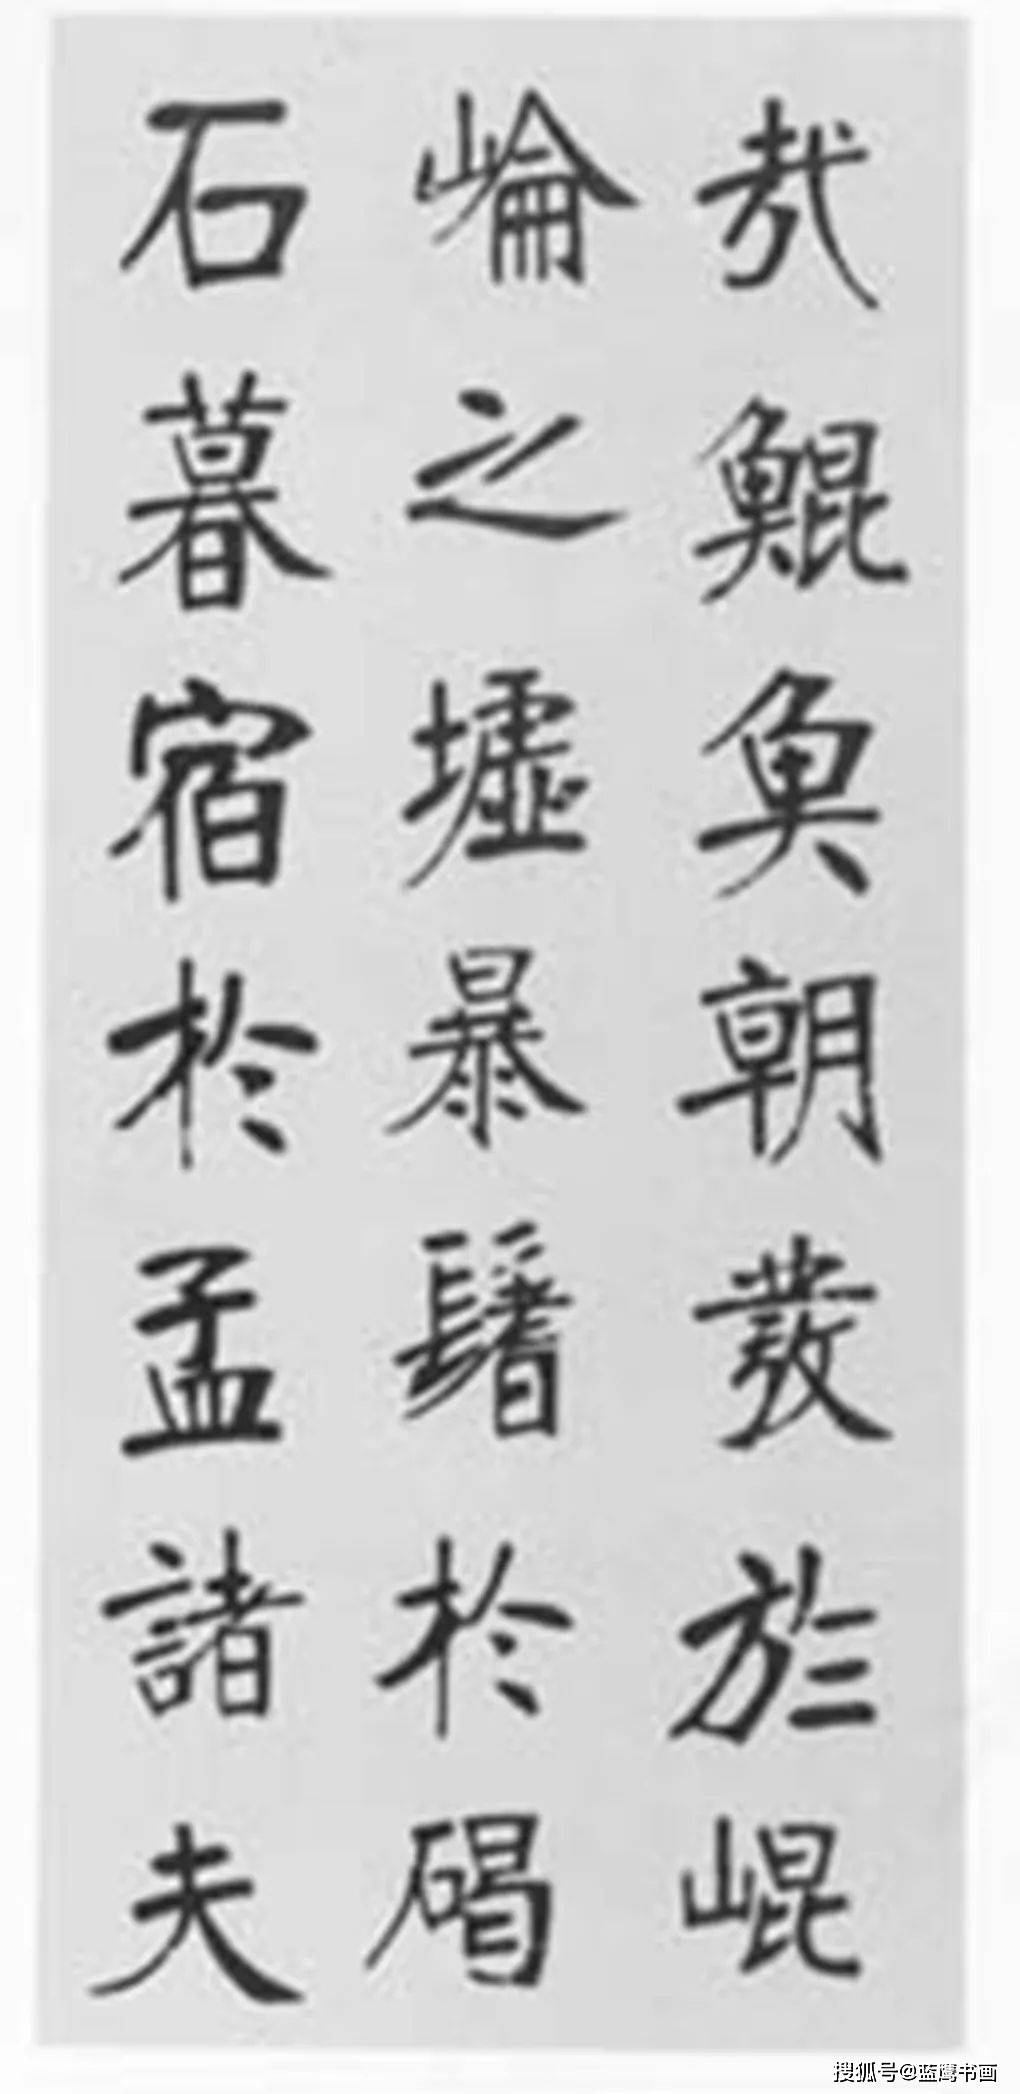 哉鯤魚朝發於崐
崘之墟暴鬐於碣
石暮宿於孟諸夫
搜狐号@蓝鹰书画